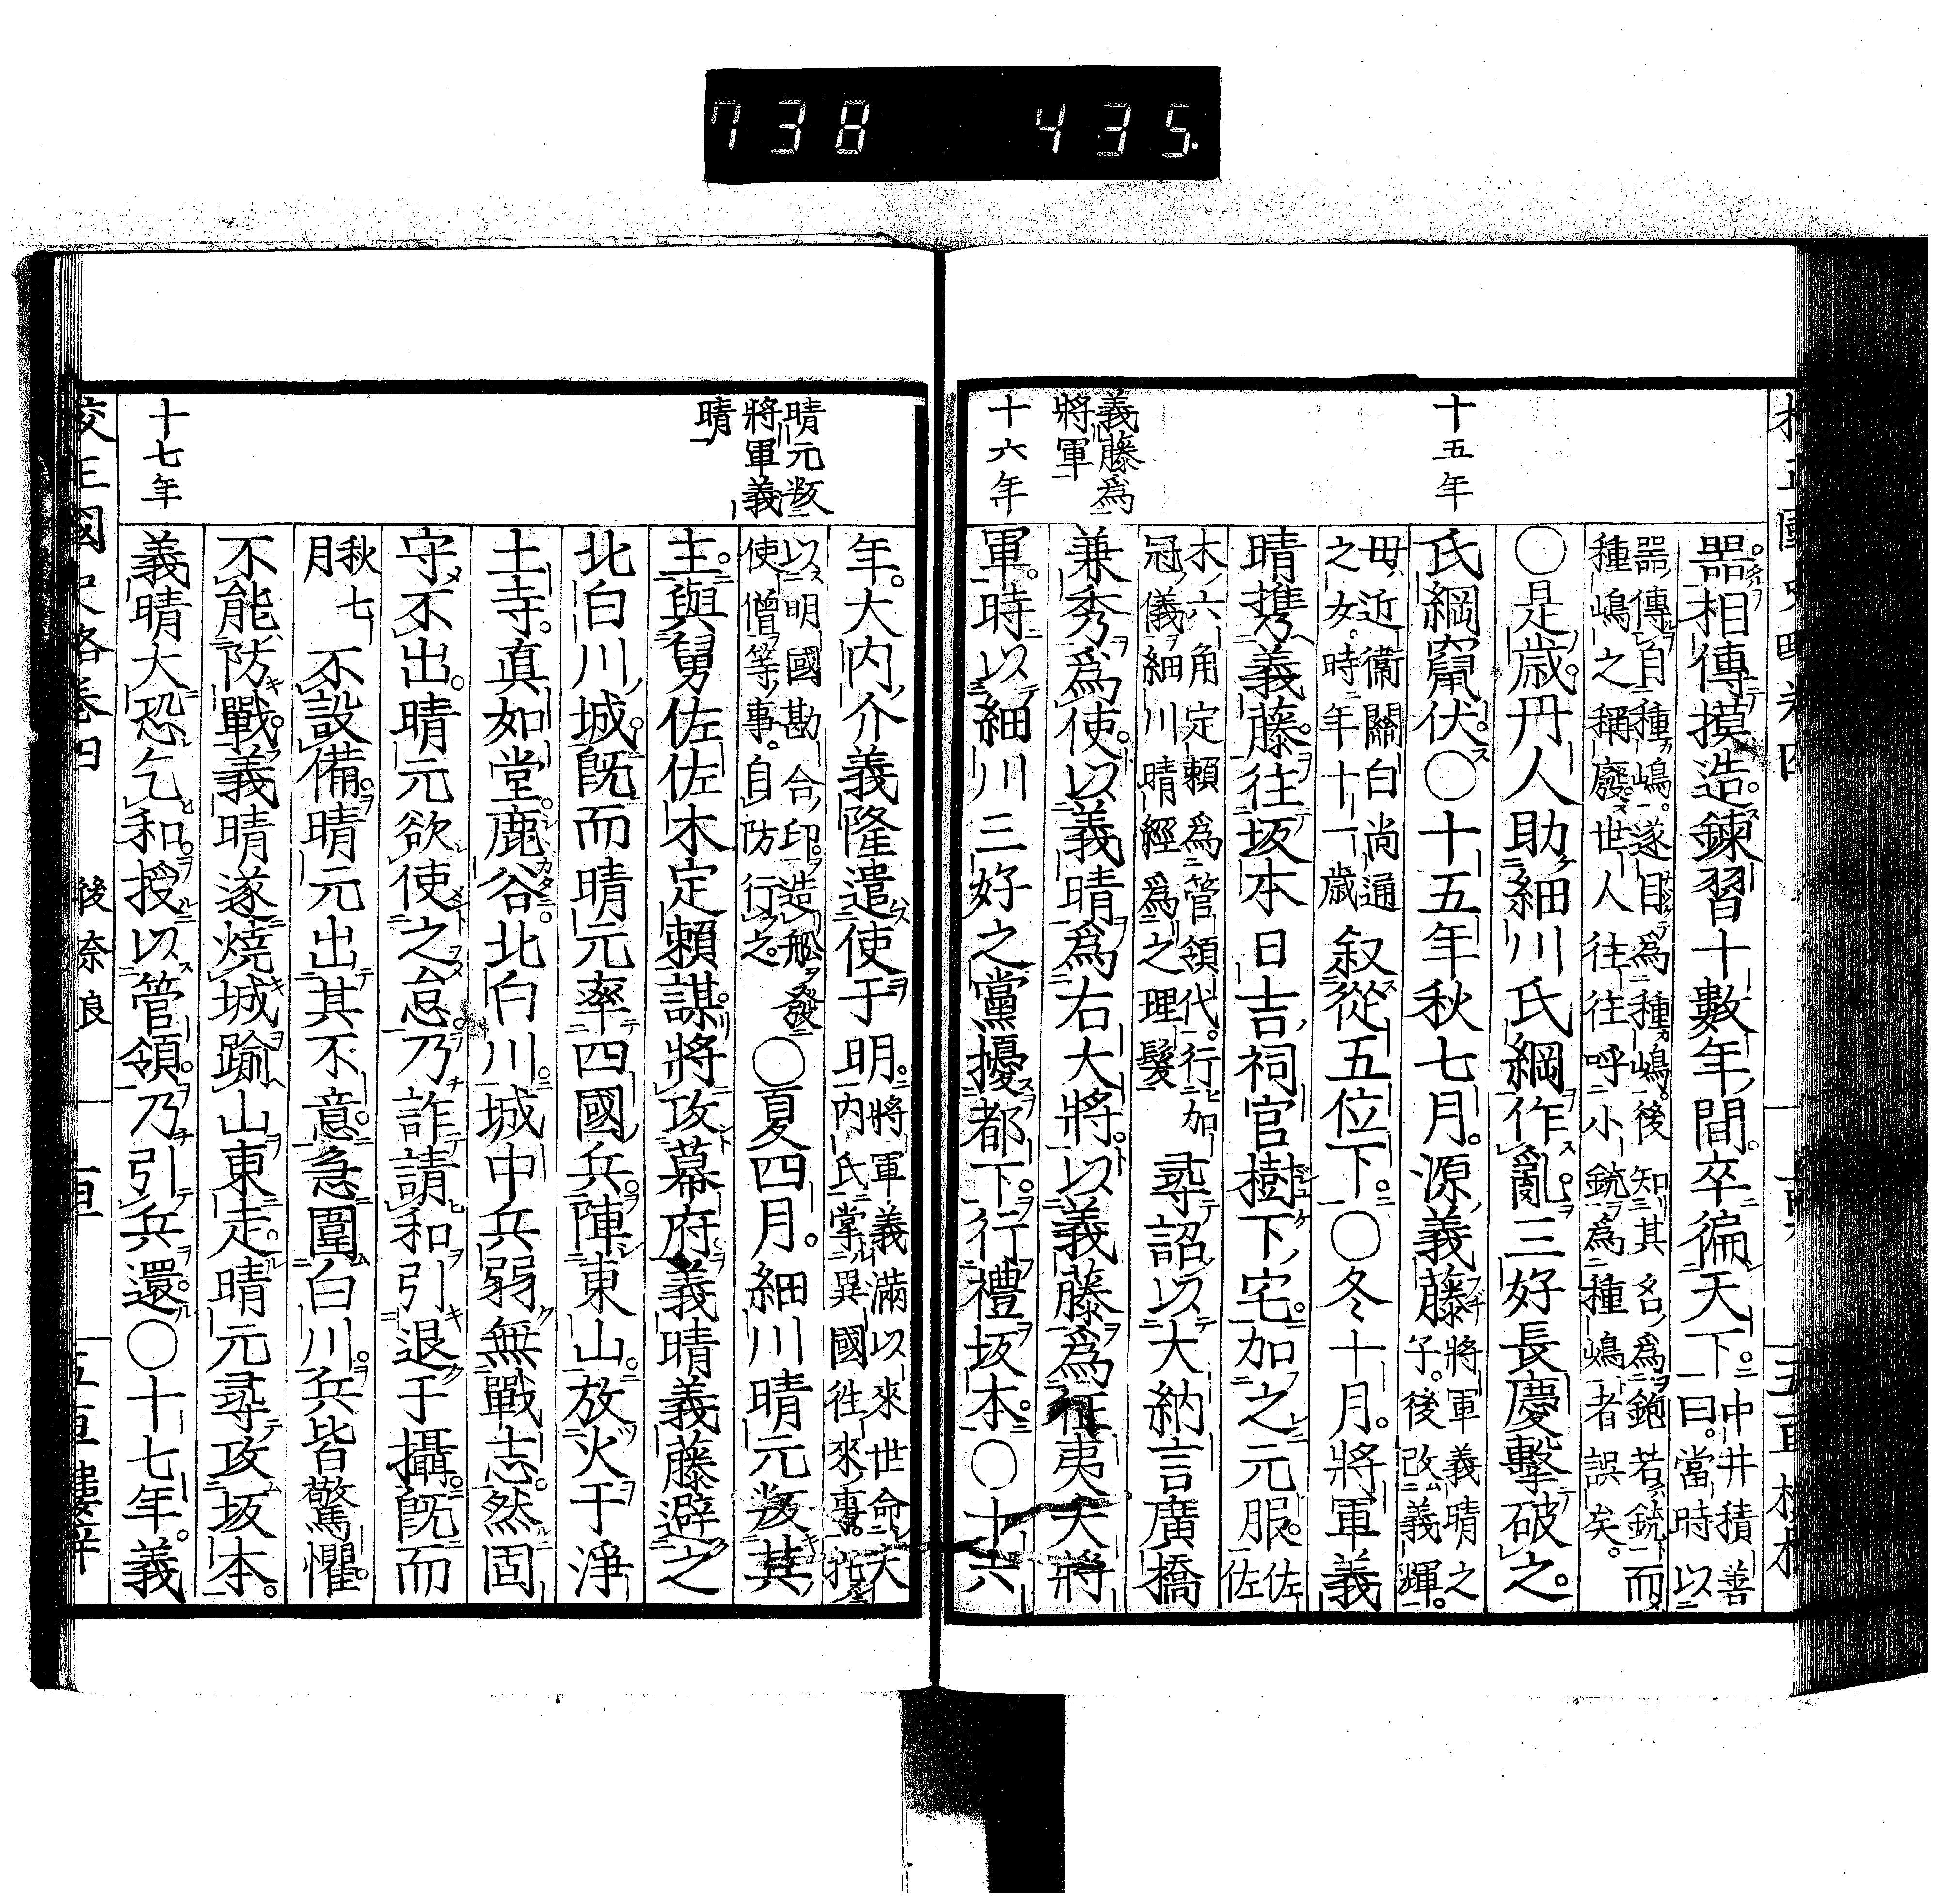 738 435.
器相傳摸造鍊習十數年間卒徧天下中井積善曰當時以
器傳自種嶋遂目爲種嶋後知其名爲鉋若銃而種嶋之稱廢世人往往呼小銃爲種嶋者誤矣
〇是歲丹人助細川氏綱作亂三好長慶擊破之
氏綱竄伏〇十五年秋七月源義藤將軍義晴之子後改義輝
母近衞關白尚通之女時年十一歲叙從五位下〇冬十月將軍義
晴攜義藤往坂本日吉祠官樹下宅加之元服佐佐
木六角定賴爲管領代行加冠儀細川晴經爲之理髮尋詔以大納言廣橋
兼秀爲使以義晴爲右大將以義藤爲征夷大將
軍時以細川三好之黨擾都下行禮坂本〇十六
十五年
義藤爲將軍
十六年
年大内介義隆遣使于明將軍義滿以來世命大内氏掌異國往來事
以明國勘合印造舩發使僧等事自防行之〇夏四月細川晴元叛其
主與舅佐佐木定賴謀將攻幕府義晴義藤避之
北白川城既而晴元率四國兵陣東山放火于淨
土寺真如堂鹿谷北白川城中兵弱無戰志然固
守不出晴元欲使之怠乃詐請和引退于攝既而
秋七月不設備晴元出其不意急圍白川兵皆驚懼
不能防戰義晴遂燒城踰山東走晴元尋攻坂本
義晴大恐乞和授以管領乃引兵還〇十七年義
晴元叛將軍義晴
十七年
國史略卷四 後奈良